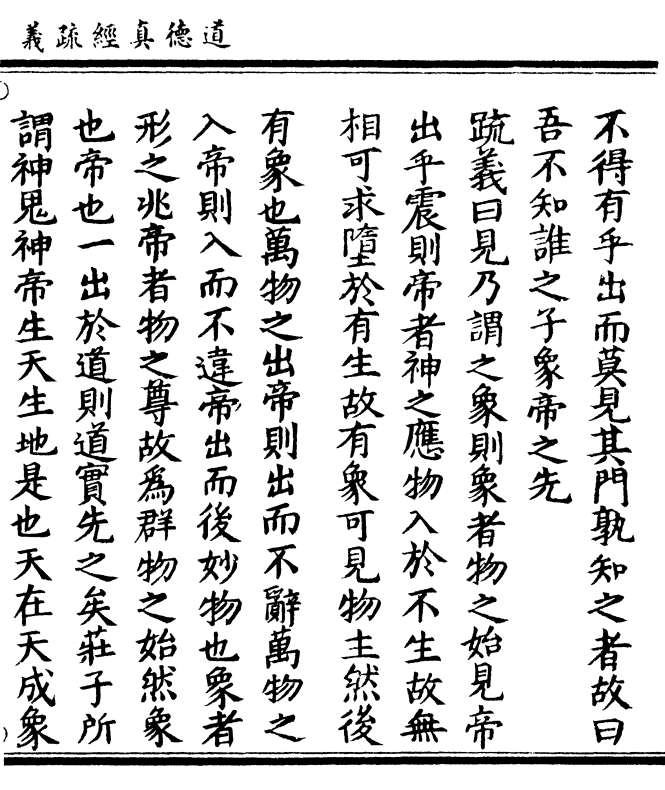 道德真經疏義
不得有乎出而莫見其門孰知之者故曰
吾不知誰之子象帝之先
疏義曰見乃謂之象則象者物之始見帝
出乎震則帝者神之應物入於不生故無
相可求墮於有生故有象可見物主然後
有象也萬物之出帝則出而不辭萬物之
入帝則入而不違帝出而後妙物也象者
形之兆帝者物之尊故爲群物之始然象
也帝也一出於道則道實先之矣莊子所
謂神鬼神帝生天生地是也天在天成象